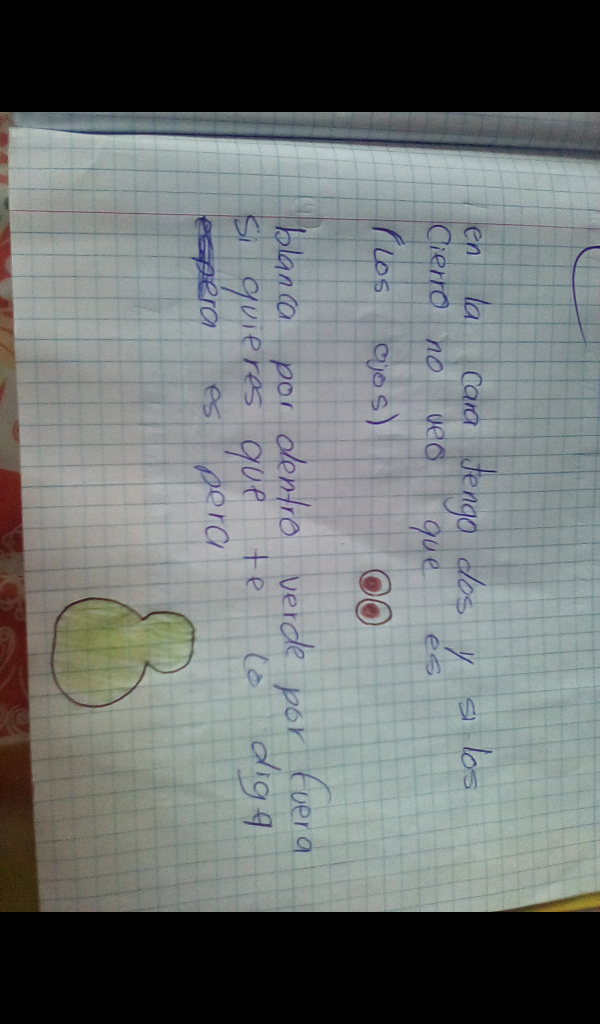 en la cara tengo dos y si los
Cierro no veo que es
(los ojos)
blanca por dentro verde por fuera
Si quieres que te lo diga
espera es pera